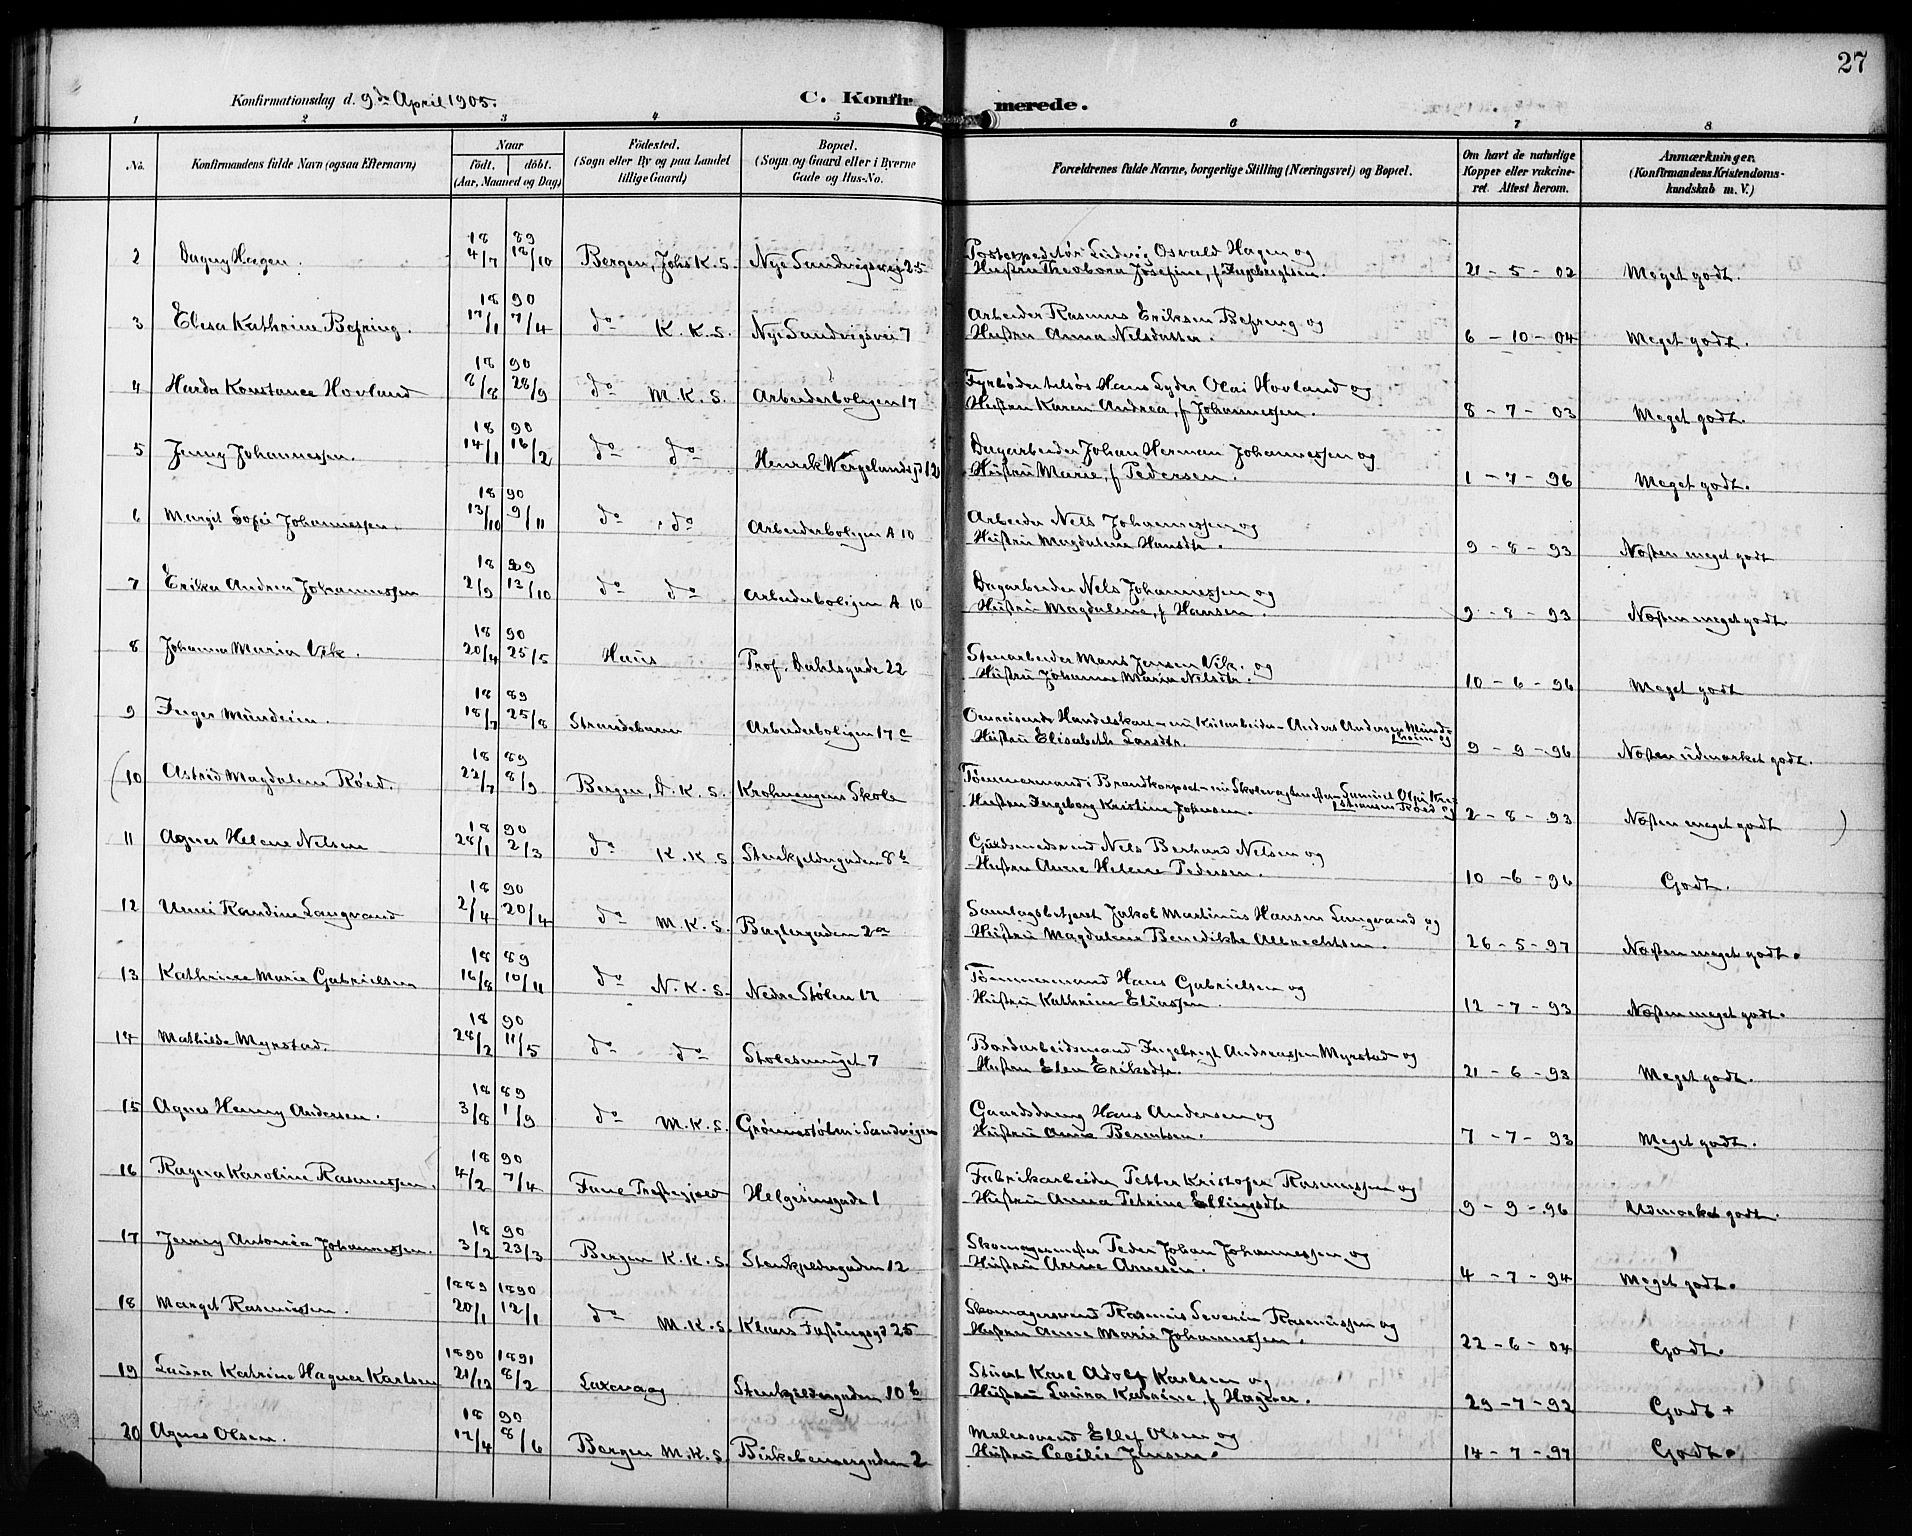 27
Konfirmationsdag d. 9de April 1905.
C. Konfirmerede.
1 2 3 4 5 6 7 8
No. Konfirmandens fulde Navn (ogsaa Efternavn) Naar født. døbt. (Aar, Maaned og Dag) Fødested. (Sogn eller By og paa Landet tillige Gaard) Bopæl. (Sogn og Gaard eller i Byerne Gade og Hus-No. Forældrenes fulde Navne, borgerlige Stilling (Næringsvei) og Bopæl. Om havt de naturlige Kopper eller vakcineret. Attest herom. Anmærkninger. (Konfirmandens Kristendomskundskab m. V.)
2 Dagny Hagen. 18 89 4/7 12/10 Bergen, Johs K. S. Nye Sandvigsvei 25 Postexpeditør Ludvig Osvald Hagen og
Hustru Theobora Josefine, f Ingebrigtsen. 21 - 5 - 02 Meget godt.
3 Elesa Kathrine Befring. 18 90 17/1 7/4 do K. K. S. Nye Sandvigsvei 7 Arbeider Rasmus Eriksen Befring og
Hustru Anna Nelsdatter. 6 - 10 - 04 Meget godt.
4 Harda Konstance Hovland 18 90 8/8 28/9 do M. K. S. Arbeiderboligen 17 Fyrbøder Hans Lyder Olai Hovland og
Hustru Karen Andrea, f Johannessen. 8 - 7 - 03 Meget godt.
5 Jenny Johannessen. 18 90 14/1 16/2 do do Henrik Wergelandsgd 12 Dagarbeider Johan Herman Johannessen og
Hustru Marie, f Pedersen. 1 - 7 - 96 Meget godt.
6 Margit Sofie Johannessen. 18 90 13/10 9/11 do do Arbeiderboligen A 10 Arbeider Nels Johannessen og
Hustru Magdalene Hansdtr. 9 - 8 - 93 Næsten meget godt
7 Erika Andrea Johannessen 18 89 2/9 13/10 do do Arbeiderboligen A 10 Dagarbeider Nels Johannessen og
Hustru Magdalene, f Hansen. 9 - 8 - 93 Næsten meget godt
8 Johanna Maria Vik. 18 90 20/4 25/5 Haus Prof. Dahlsgade 22 Stenarbeider Mons Jensen Vik. og
Hustru Johanna Maria Nelsdtr. 10 - 6 - 96 Meget godt
9 Inger Mundheim. 18 89 18/7 25/8 Strandebarm Arbeiderboligen 17 c Omreisende Handelskarl - nu Kularbeider - Anders Andersen Mundheim og
Hustru Elisabeth Larsdtr. 9 - 9 - 96 Næsten udmærket godt.
(10 Astrid Magdalene Røed. 18 89 22/7 8/9 Bergen, D. K. S. Krohnengens Skole Tømmermand i Brandkorpset - nu Skolevagtmester - Samuel Olai Kristiansen Røed og
Hustru Ingeborg Kristine Johnsen. 2 - 8 - 93 Næsten meget godt )
11 Agnes Helene Nelsen 18 90 28/1 2/3 do K. K. S. Stenkjeldergaden 8 b Guldsmedsvend Nels Berhard Nelsen og
Hustru Anne Helene Pedersen. 10 - 6 - 96 Godt.
12 Unni Randine Langvand 18 90 2/4 20/4 do M. K. S. Baglergaden 2 a Samlagsbetjent Jakob Martinus Hansen Langvand og
Hustru Magdalene Benedikte Albrechtsen. 26 - 5 - 97 Næsten meget godt.
13 Kathrine Marie Gabrielsen 18 89 16/8 10/11 do N. K. S. Nedre Stølen 17 Tømmermand Hans Gabrielsen og
Hustru Kathrine Eliassen. 12 - 7 - 93 Næsten meget godt.
14 Mathilde Myrstad. 18 90 28/2 11/5 do do Stølesmuget 7 Bordarbeidsmand Ingebrigt Andreassen Myrstad og
Hustru Elen Eriksdtr. 21 - 6 - 93 Meget godt.
15 Agnes Henny Andersen. 18 89 3/8 1/9 do M. K. S. Grønnestølen i Sandvigen Gaardsdreng Hans Andersen og
Hustru Anna Berentsen. 7 - 7 - 93 Meget godt.
16 Ragna Karoline Rasmussen. 18 90 4/2 7/4 Fane Helgesensgade 1 Fabrikarbeider Petter Kristofer Rasmussen og
Hustru Anna Petrine Ellingsdtr 9 - 9 - 96 Udmærket godt.
17 Jenny Antonèa Johannessen. 18 90 3/2 23/3 Bergen K. K. S. Stenkjeldergaden 12 Skomagermester Peder Johan Johannessen og
Hustru Anne Arnesen. 4 - 7 - 94 Meget godt.
18 Margit Rasmussen. 1889 1890 20/1 12/1 do M. K. S. Klaus Fastingsgd 25 Skomagersvend Rasmus Severin Rasmussen og
Hustru Anne Marie Johannessen. 22 - 6 - 04 Godt.
19 Laura Katrine Hagner Karlsen 1890 1891 21/12 8/2 Laxevaag Stenkjeldergaden 10 b Stuert Karl Adolf Karlsen og
Hustru Laura Katrine, f Hagner. 29 - 7 - 92 Godt +
20 Agnes Olsen. 18 90 17/4 8/6 Bergen M. K. S. Birkebeinergaden 2 Malersvend Ellef Olsen og
Hustru Cecilie Jensen. 14 - 7 - 97 Godt.